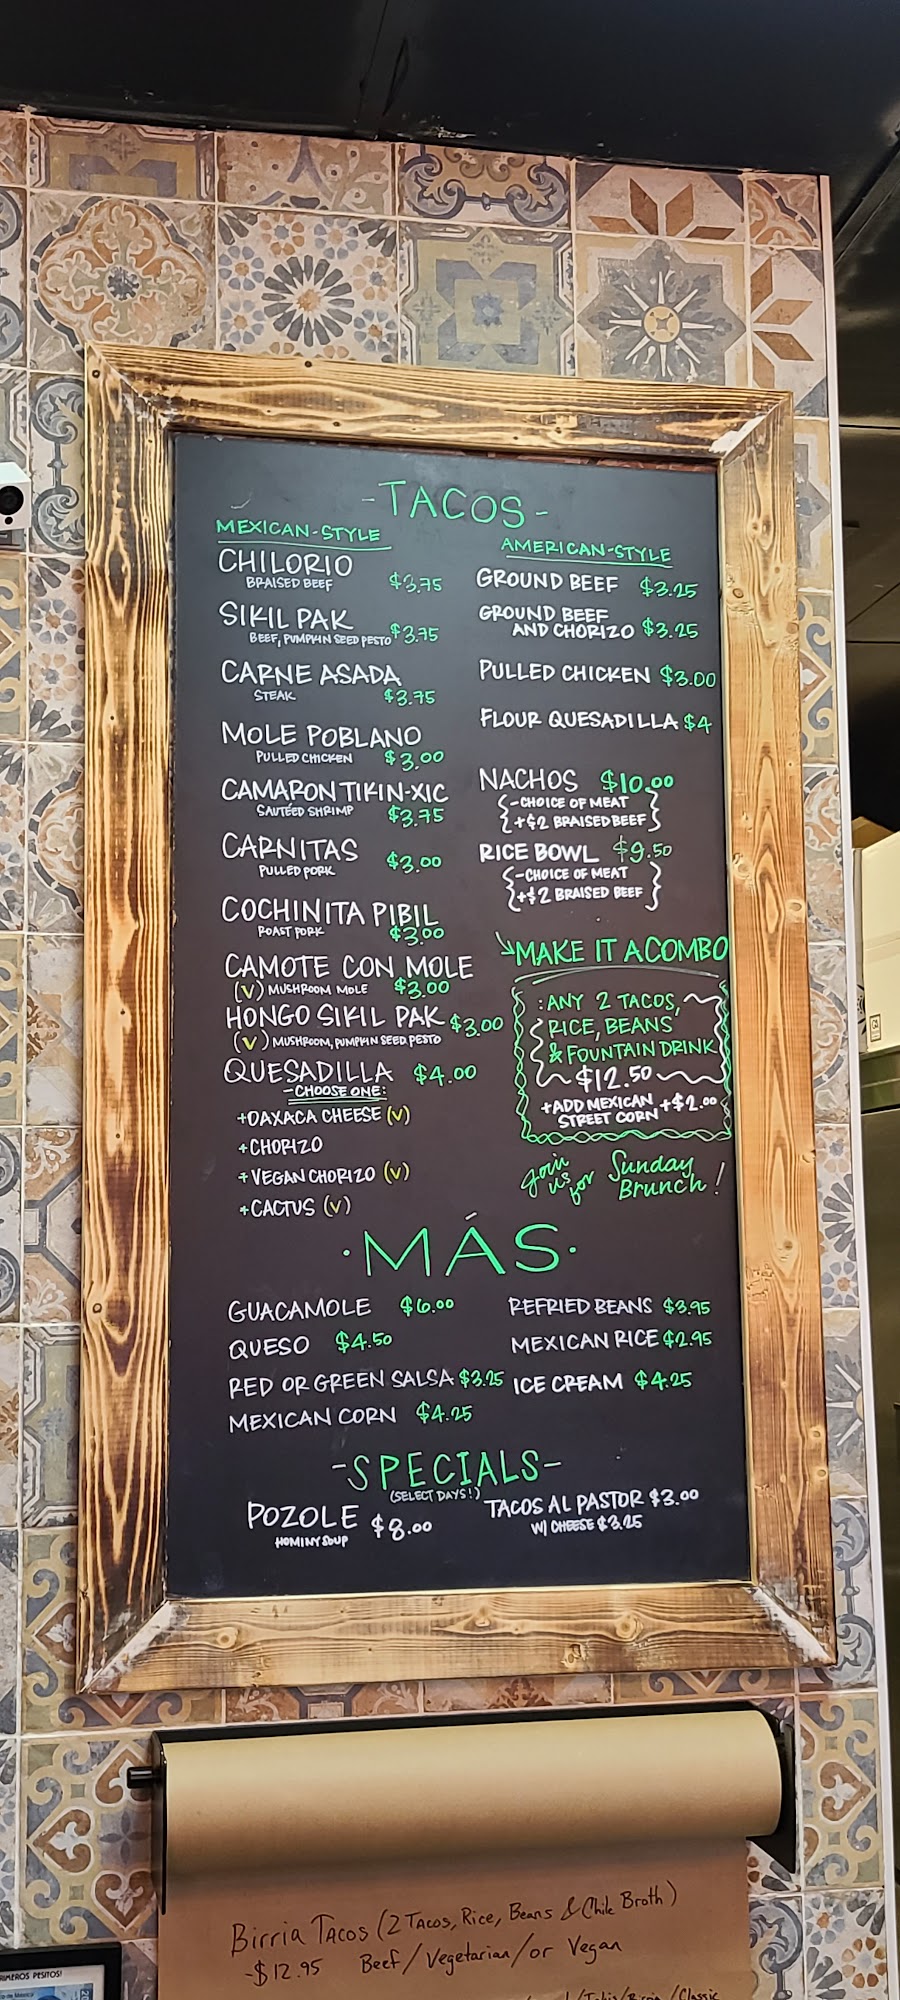 -TACOS-
MEXICAN-STYLE
CHILORIO
BRAISED BEEF $3.75
SIKIL PAK
BEEF, PUMPKIN SEED PESTO $3.75
CARNE ASADA
STEAK $3.75
MOLE POBLANO
PULLED CHICKEN $3.00
CAMARON TIKIN-XIC
SAUTÉED SHRIMP $3.75
CARNITAS
PULLED PORK $3.00
COCHINITA PIBIL
ROAST PORK $3.00
CAMOTE CON MOLE
(V) MUSHROOM MOLE $3.00
HONGO SIKIL PAK $3.00
(V) MUSHROOM, PUMPKIN SEED PESTO
QUESADILLA $4.00
-CHOOSE ONE:
+OAXACA CHEESE (V)
+CHORIZO
+VEGAN CHORIZO (V)
+CACTUS (V)
AMERICAN-STYLE
GROUND BEEF $3.25
GROUND BEEF
AND CHORIZO $3.25
PULLED CHICKEN $3.00
FLOUR QUESADILLA $4
NACHOS $10.00
-CHOICE OF MEAT
+$2 BRAISED BEEF
RICE BOWL $9.50
-CHOICE OF MEAT
+$2 BRAISED BEEF
MAKE IT A COMBO
:ANY 2 TACOS,
RICE, BEANS
& FOUNTAIN DRINK
$12.50
+ADD MEXICAN
STREET CORN +$2.00
Join us for Sunday
Brunch!
·MÁS·
GUACAMOLE $6.00
QUESO $4.50
RED OR GREEN SALSA $3.25
MEXICAN CORN $4.25
REFRIED BEANS $3.95
MEXICAN RICE $2.95
ICE CREAM $4.25
-SPECIALS-
(SELECT DAYS!)
POZOLE $8.00
HOMINY SOUP
TACOS AL PASTOR $3.00
W/ CHEESE $3.25
Birria Tacos (2 Tacos, Rice, Beans & Chile Broth)
-$12.95 Beef/Vegetarian/or Vegan
/Birria/Classic
RIMEROS PESITOS!